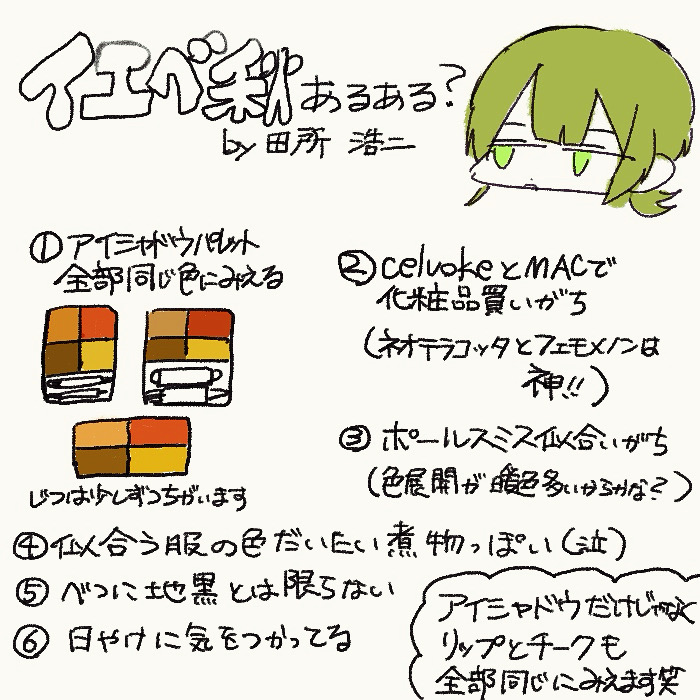 イエベ秋あるある?
by 田所 浩二
①アイシャドウパレット
全部同じ色にみえる
じつは少しずつちがいます
②celvokeとMACで
化粧品買いがち
(ネオテラコッタとフェモメノンは
神!!)
③ポールスミス似合いがち
(色展開が暖色多いからかな?)
④似合う服の色だいたい煮物っぽい(泣)
⑤べつに地黒とは限らない
⑥日やけに気をつかってる
アイシャドウだけじゃなく
リップとチークも
全部同じにみえます笑